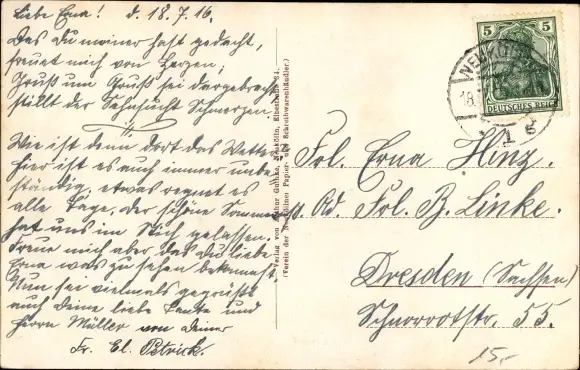 Liebe Erna! d. 18.7.16.
Das Du meiner hast gedacht,
freuet mich von Herzen;
Gruß um Gruß sei dargebracht
stillt der Sehnsucht Schmerzen.
Wie ist denn dort das Wetter
hier ist es auch immer unbe-
ständig, etwas regnet es
alle Tage, der schöne Sommer
hat uns im Stich gelassen.
Freue mich aber das Du liebe
Erna was zu sehen bekommst.
Nun sei vielmals gegrüßt
auch Deine liebe Tante und
Herrn Müller von Deiner
Fr. El. Petrick.
Verlag von Arthur Neukölln, Elbestraße
(Verein der Neuköllner Papier- und Schreibwarenhändler.)
5 5
DEUTSCHES REICH
NEUKÖLLN
18
1 e
Frl. Erna Hinz.
p. Ad. Frl. B. Linke.
Dresden (Sachsen)
Schnorrstr. 55.
15,-